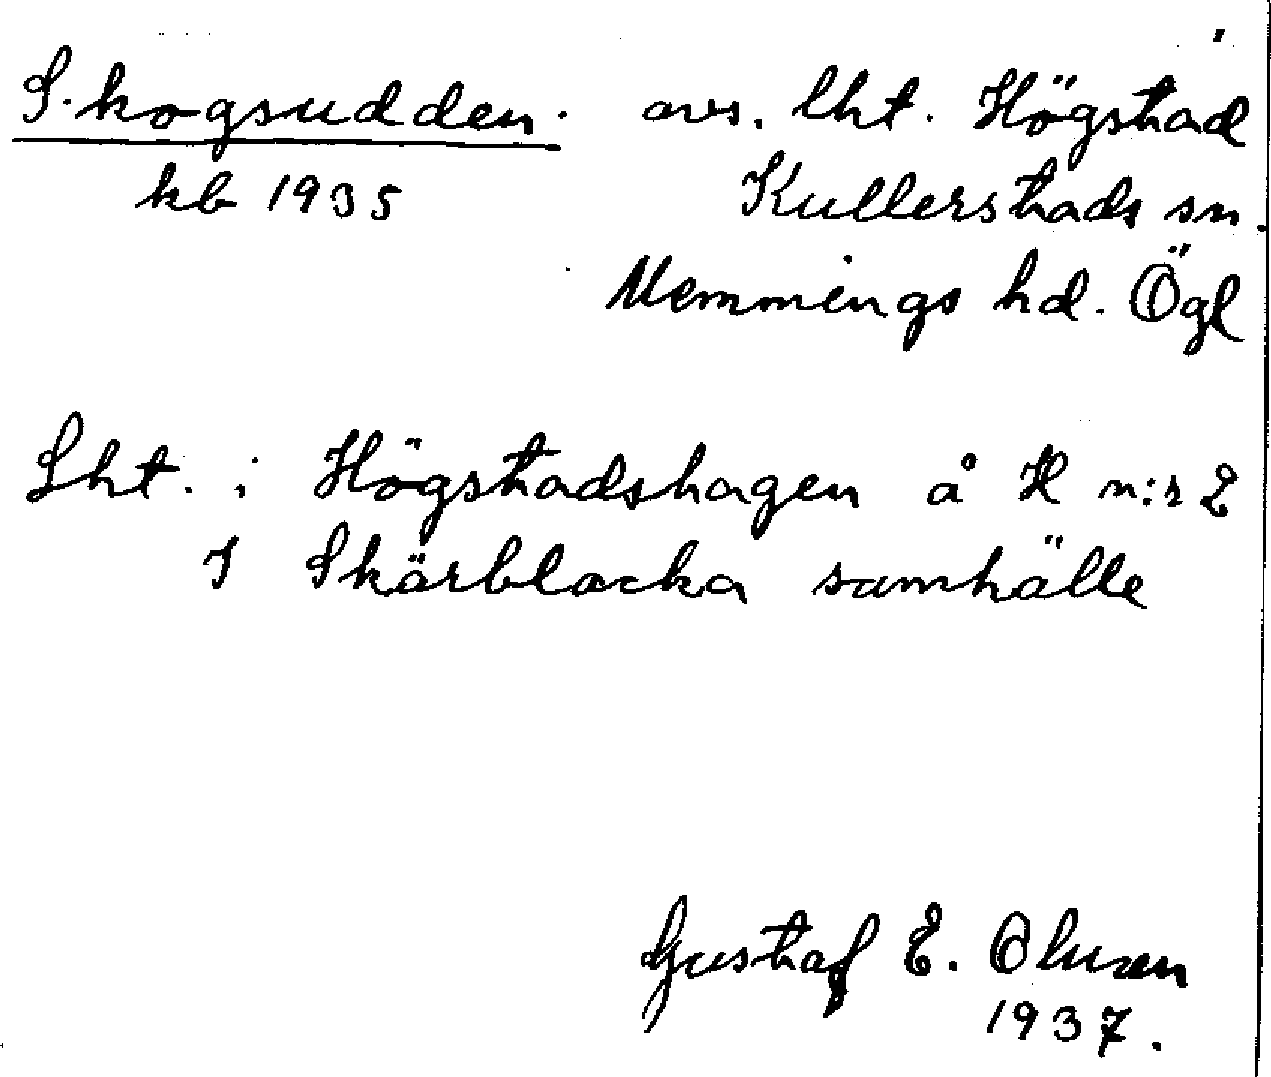 Skogsudden. avs. lht. Högstad
kb 1935 Kullerstads sn.
Memmings hd. Ögl
Lht. i Högstadshagen å H n:r 2
I Skärblacka samhälle
Gustaf E. Olusen
1937.